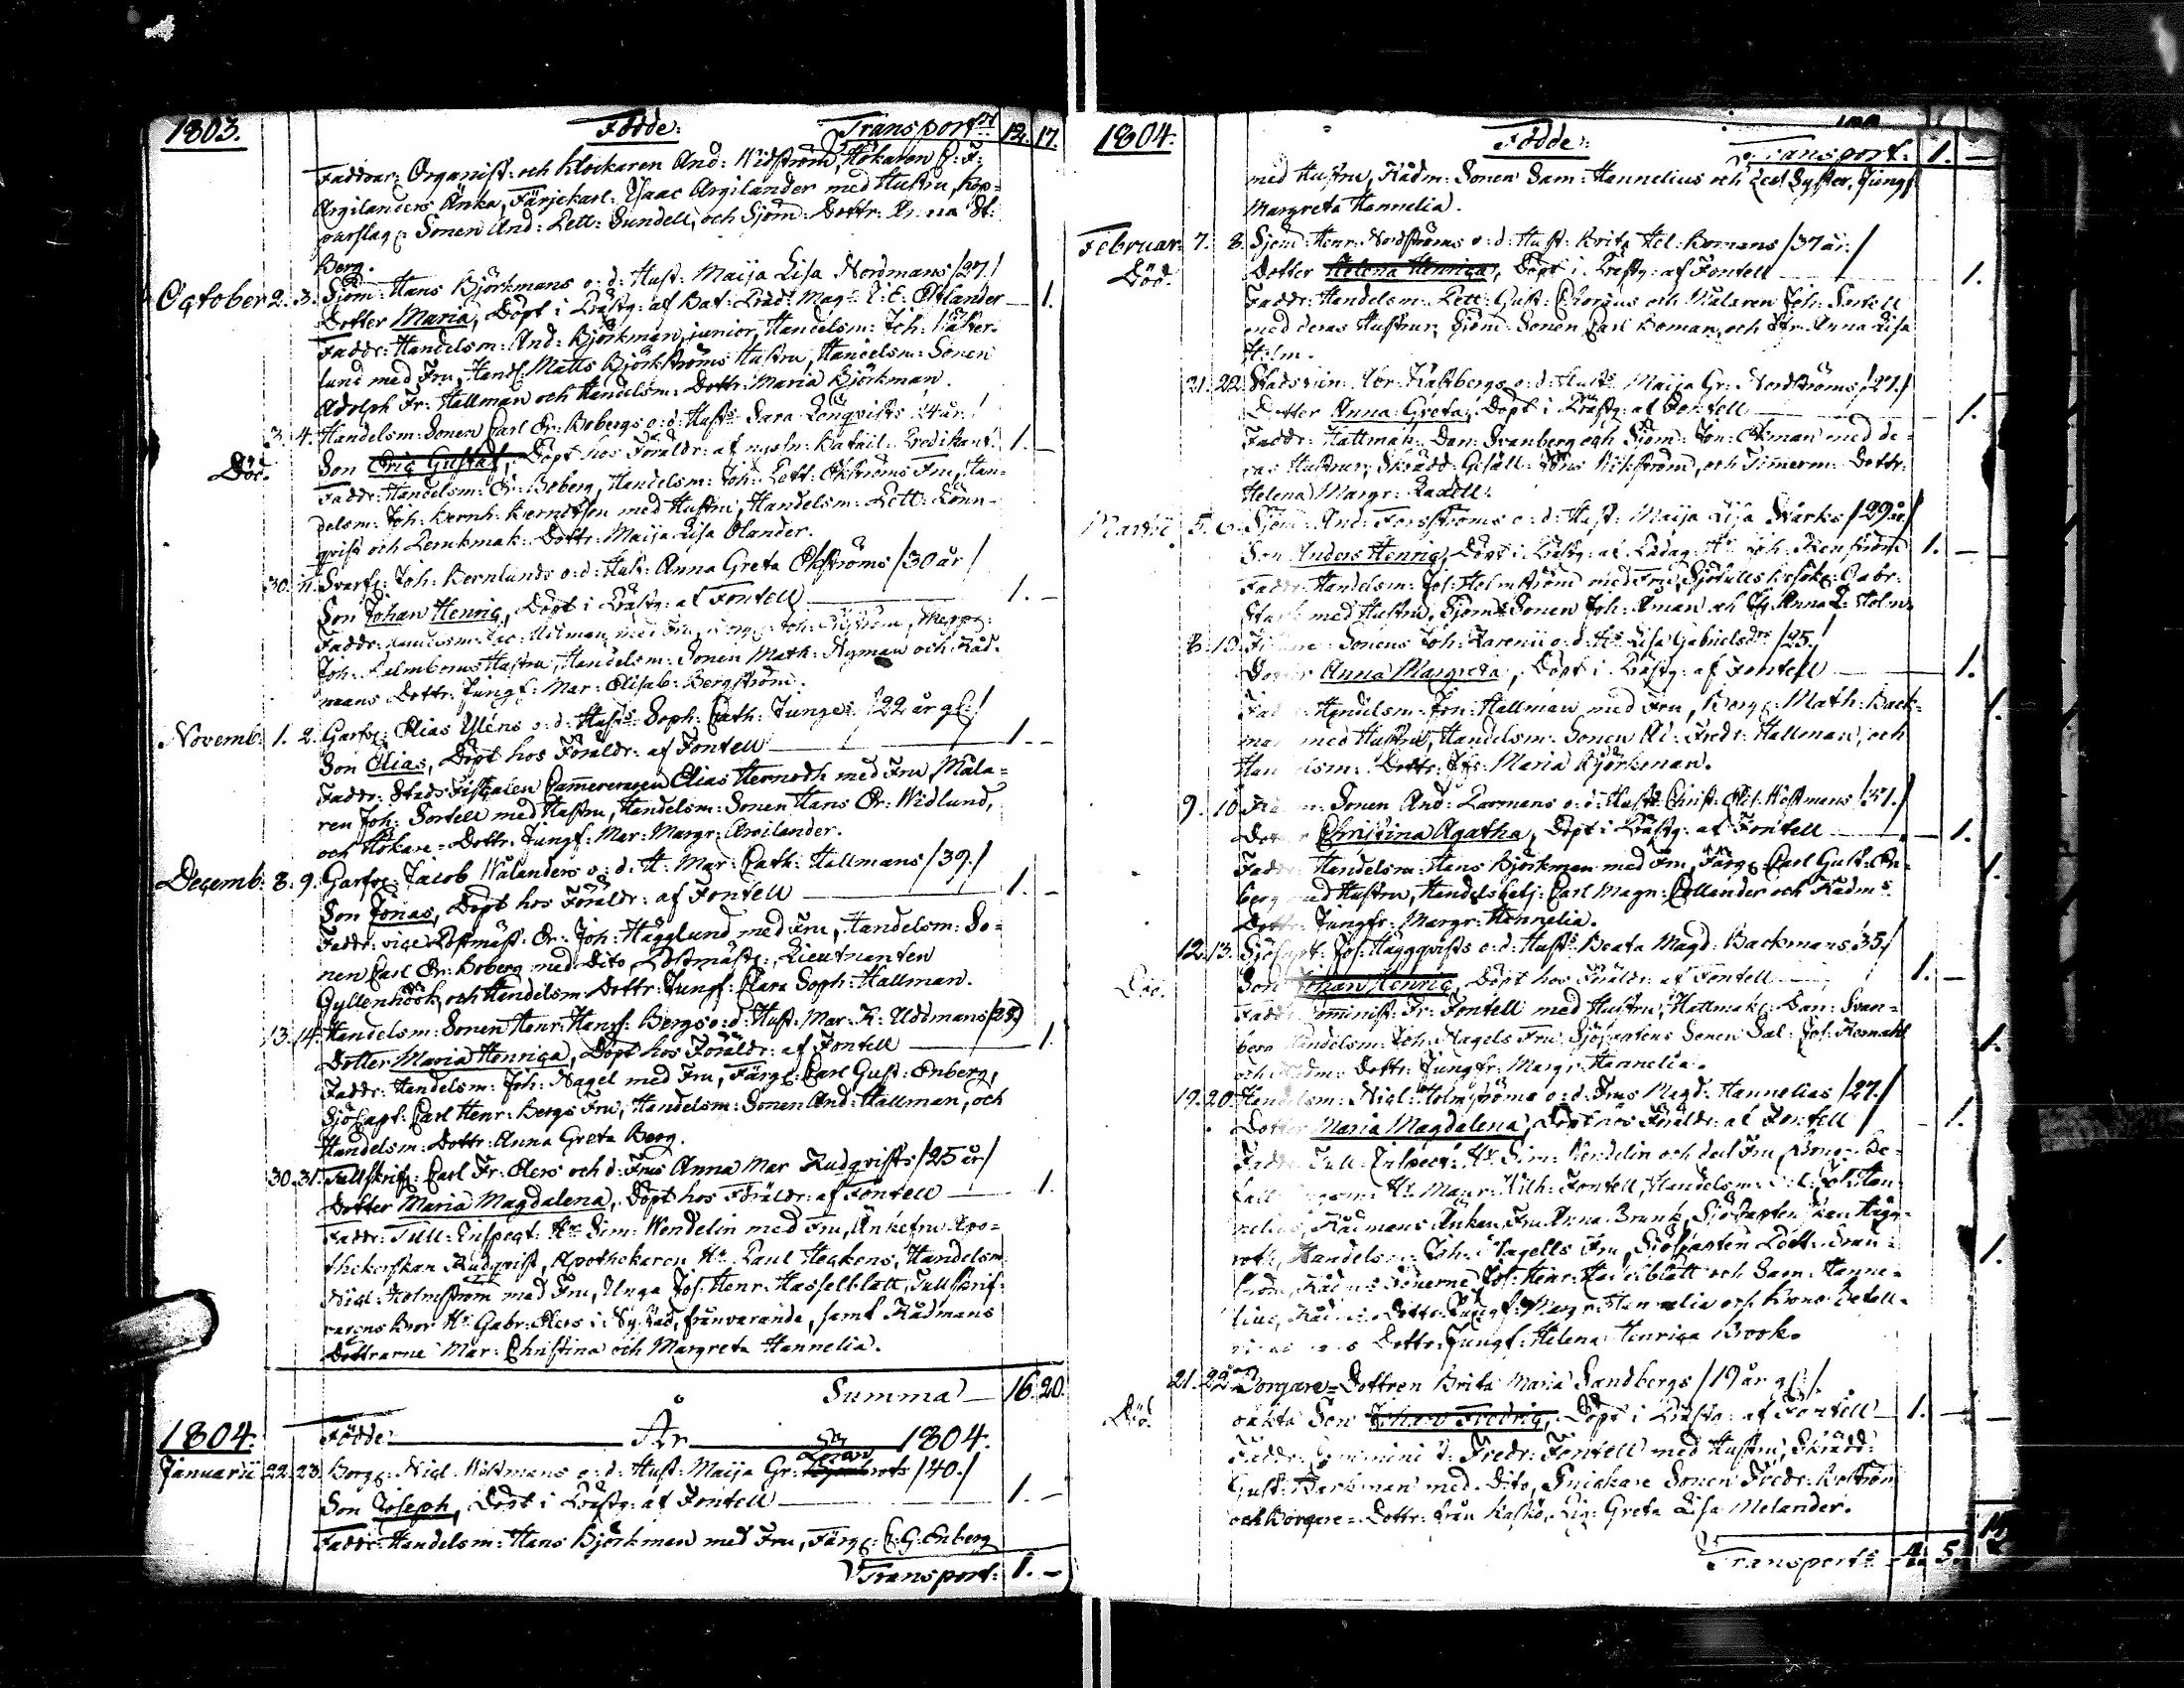 1803. Födde: Transport 12. 17.
Faddrar: Organist och Klockaren And: Widström, Hökaren E: F:
Argilanders Änka, Färjekarl: Isaac Argilander med Hustru, Kop=
parslag: Sonen And: Pett: Sundell, och Sjöm: Dottr: Anna St:
Berg.
October 2. 3. Sjöm: Hans Björkmans o: d: Hust: Maija Lisa Nordmans /27./
Dotter Maria, Döpt i Prästg: af Bat: Präd: Mag: Z: E: Estlander 1.
Faddr: Handelsm: And: Björkman, junior, Handelsm: Joh: Väster-
lund med Fru, Handl: Matts Björkströms Hustru, Handelsm: Sonen
Adolph Fr: Hallman och Handelsm: Dottr: Maria Björkman.
3. 4. Handelsm: Sonen Carl Er: Bobergs o: d: Hust: Sara Lönqvists 24 år /
Död. Son Eric Gustaf, Döpt hos Föräldr: af Batail: Predikant. 1. -
Faddr: Handelsm: Er: Boberg, Handelsm: Joh: Pett: Ekströms Fru, Han-
delsm: Joh: Bernh: Berndtson med Hustru, Handelsm: Pett: Lönn-
qvist och Remkmak: Dottr: Maija Lisa Olander.
30. 31. Svarf: Joh: Bernlunds o: d: Hust: Anna Greta Ekströms /30 år/
Son Johan Henric, Döpt i Prästg: af Fontell 1. -
Faddr: Handelsm: med Fru, Joh: Skepp:
Joh: Hustru, Handelsm: Sonen Math: Nyman och Råd-
mans Dottr: Jungf: Mar: Elisab: Bergström.
Novemb: 1. 2. Garfv: Elias Yléns o: d: Hust: Soph: Cath: Junges /22 år gl:/
Son Elias, Döpt hos Föräldr: af Fontell 1. -
Faddr: Stads Fiskalen Camereraren Elias Hernodh med Fru, Måla=
ren Joh: Sortell med Hustru, Handelsm: Sonen Hans Er: Widlund,
och Hökare=Dottr: Jungf: Mar: Margr: Argilander.
Decemb: 8. 9. Garfv: Jacob Wålanders o: d: H: Mar: Cath: Hallmans /39./
Son Jonas, Döpt hos Föräldr: af Fontell 1. -
Faddr: vice Postmäst: Er: Joh: Hägglund med Fru, Handelsm: So=
nen Carl Er: Boberg med Dito, Postmäst: Lieutnanten
Gyllenhöök, och Handelsm: Dottr: Jungf: Clara Soph: Hallman.
13. 14. Handelsm: Sonen Henr: Hansf: Bergs o: d: Hust: Mar: K: Uddmans /28/
Dotter Maria Henrica, Döpt hos Föräldr: af Fontell 1.
Faddr: Handelsm: Joh: Nagel med Fru, Färg: Carl Gust: Enberg,
Sjöcapt: Carl Henr: Bergs Fru, Handelsm: Sonen And: Hallman, och
Handelsm: Dottr: Anna Greta Berg.
30. 31. Tullskrif: Carl Fr: Elers och d: Frus Anna Mar Rudqvists /25 år/
Dotter Maria Magdalena, Döpt hos Föräldr: af Fontell 1.
Faddr: Tull-Inspect: Hr Sim: Wendelin med Fru, Änkefru Apo=
thekerskan Rudqvist, Apothekaren Hr Paul Heckens, Handelsm
Nicl: Holmström med Fru, Unga Jos: Henr: Hasselblatt, Tullskrif-
varens Bror Hr Gabr: Elers i Ny Stad, frånvarande, samt Rådmans
Döttrarne Mar: Christina och Margreta Hannelia.
Summa 16. 20.
1804. Födde År 1804.
Januarii 22. 23. Borg: Nicl: Wästmans o: d: Hust: Maija Gr: /40./
Son Joseph, Döpt i Prästg: af Fontell 1. -
Faddr: Handelsm: Hans Björkman med Fru, Färg: C: G: Enberg
Transport: 1. -
1804. Födde: Transport: 1. -
med Hustru, Rådm: Sonen Sam: Hannelius och Syster, Jungf
Margreta Hannelia.
Februar: 7. 8. Sjöm: Henr: Nordströms o: d: Hust: Brita Hel: Bomans /37 år:/
Död. Dotter Helena Henrica, Döpt i Prästg: af Fontell 1.
Faddr: Handelsm: Pett: Gust: Choræus och Målaren Joh: Sortell
med deras Hustrur, Sjöm: Sonen Carl Boman, och Jfr: Anna Lisa
Holm.
21. 22. Stads o: d: Hust: Maija Gr: Nordströms /27./
Dotter Anna Greta, Döpt i Prästg: af Fontell 1.
Faddr: Hattmak: Dan: Svanberg och Sjöm: Jon: Ekman med de=
ras Hustrur, Skrädd: Gesäll: Wikström, och Timerm: Dottr:
Helena Margr: Paxell.
Martii 5. 6. Sjöm: And: Forsströms o: d: Hust: Maija Lisa Starks /29 år/
Son Anders Henric, Döpt i Prästg: af Pädag: Hr Joh: 1. -
Faddr: Handelsm: Jos: Holmström med Fru, Sjötulls besök: Gabr:
Stark med Hustru, Sjöm: Sonen Joh: Åman och Jfr Anna L: Holm
8. 10. Sonens Joh: o: d: Hs Lisa Gabrielsdr /25./
Dotter Anna Margreta, Döpt i Prästg: af Fontell 1.
Faddr: Handelsm: Jon: Hallman med Fru, Borg: Math: Back-
man med Hustru, Handelsm: Sonen Ad: Fredr: Hallman, och
Handelsm: Dottr: Jfr: Maria Björkman.
9. 10 Sonen And: Parmans o: d: Hust: Christ: Wästmans /31./
Dotter Christina Agatha, Döpt i Prästg: af Fontell 1.
Faddr: Handelsm: Hans Björkman med Fru, Färg: Carl Gust: En=
berg med Hustru, Handelsbetj: Carl Magn: Collander och Rådms
Dottr: Jungfr: Margr: Hannelia.
12. 13. Sjöcapt: Jos: Häggqvists o: d: Hust: Beata Magd: Backmans /35/
Död. Son Johan Henric, Döpt hos Föräldr: af Fontell 1. -
Faddr: Comminist: Fr: Fontell med Hustru, Hattmak: Dan: Svan=
berg Handelsm: Joh: Nagels Fru, Sjöcaptens Sonen
och Rådm: Dottr: Jungfr: Margr: Hannelia.
19. 20. Handelsm: Nicl: Holmströms o: d: Frus Magd: Hannelias /27./
Dotter Maria Magdalena, Döpt hos Föräldr: af Fontell 1.
Faddr: Tull-Inspect: Hr Sim: Wendelin och dess Fru,
Hr Magr: Wilh: Fontell, Handelsm:
nelius, Rådmans Änkan, Fru Anna Brunk, Sjöcapten
Handelsm: Joh: Nagells Fru, Sjöcapten
Rådms Sönerne Jos: Henr: Hasselblatt och Sam: Hanne-
lius, Dottr: Jungf: Margr: Hannelia och
Dottr: Jungf: Helena Henrica Book.
21. 22. Borgare=Dottren Brita Maria Sandbergs /19 år gl:/
Död. oäkta Son Johan Fredric, Döpt i Prästg: af Fontell 1. -
Faddr: Comminist: Fredr: Fontell med Hustru, Skrädd:
Gust: Barkman med Dito, Snickare Sonen Fredr:
och Borgare=Dottr: från Kaskö, Greta Lisa Melander.
Transport: 4. 5.